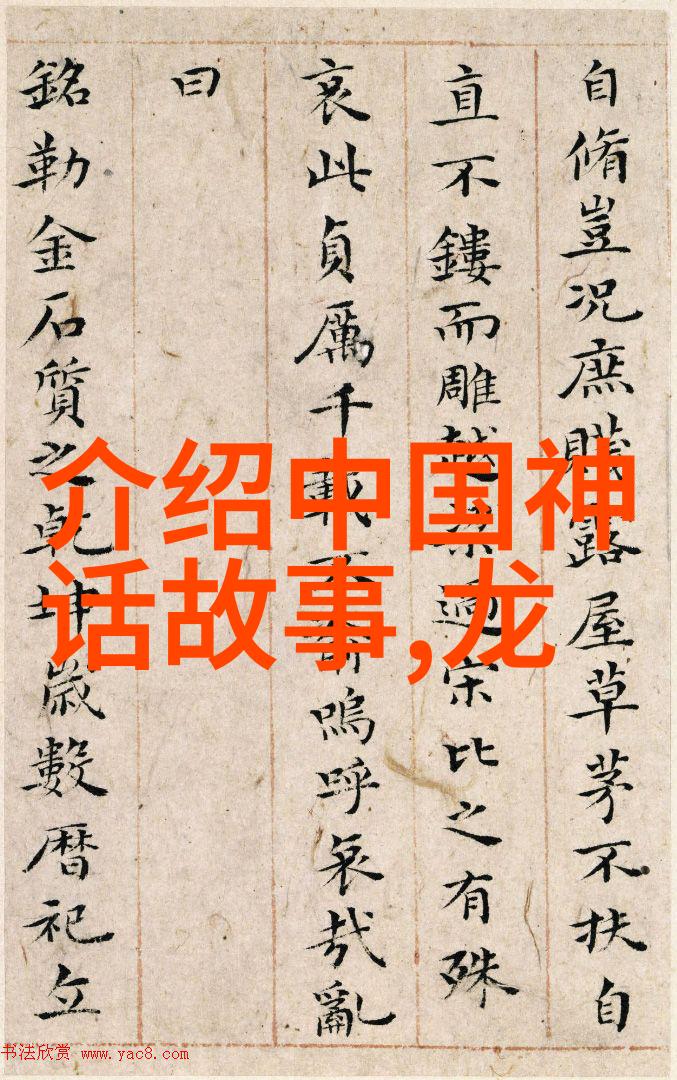 介绍中国神
话故事,龙
自脩豈況庶賤露屋草茅不扶自
直不鏤而雕越過宋比之有殊
哀此貞厲千載不嗚呼哀哉亂
曰
銘勒金石質之乾坤歲數曆祀立
书法欣赏 www.yac8.com